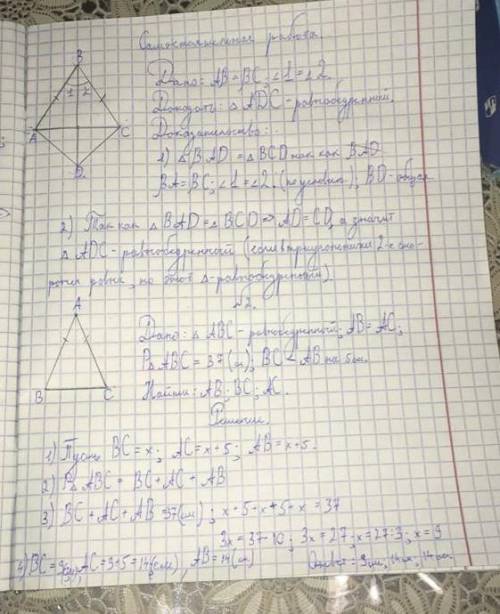 Самостоятельная работа.
B
1 2
A
C
D
Дано: AB = BC; ∠1 = ∠2.
Доказать: △ ADC - равнобедренный.
Доказательство:
1) △ BAD = △ BCD так как BAD
BA = BC; ∠1 = ∠2. (по условию); BD - общая
2) Так как △ BAD = △ BCD ⇒ AD = CD, а значит
△ ADC - равнобедренный (если в треугольнике 2-е сто-
роны равны, то этот △ - равнобедренный).
№2.
A
B
C
Дано: △ ABC - равнобедренный; AB = AC;
P△ ABC = 37 (см); BC < AB на 5см.
Найти: AB; BC; AC.
Решение.
1) Пусть BC = x; AC = x + 5; AB = x + 5.
2) P△ ABC = BC + AC + AB
3) BC + AC + AB = 37 (см); x + 5 + x + 5 + x = 37
3x = 37 - 10; 3x = 27; x = 27 : 3; x = 9
4) BC = 9(см), AC = 9 + 5 = 14 (см), AB = 14 (см)
Ответ: 9см, 14см, 14см.